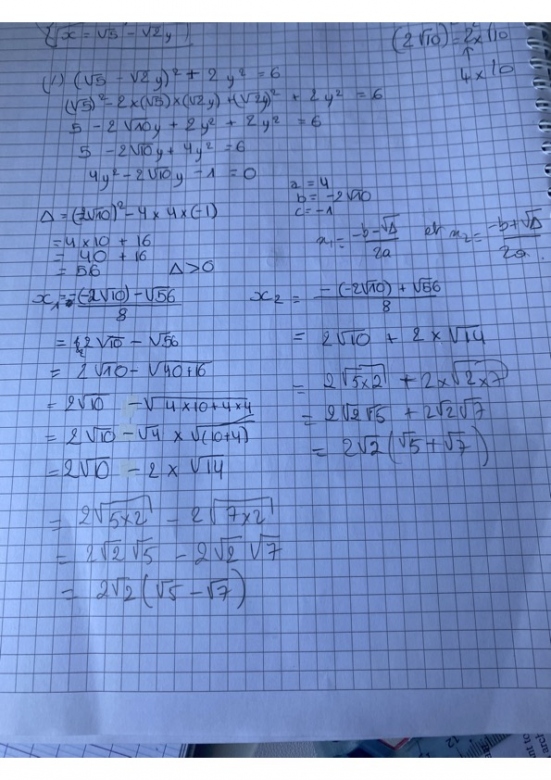 {x = √5 - √2y
(2√10)² = 2² × √10
↑
4 × 10
(1) (√5 - √2y)² + 2y² = 6
(√5)² - 2×(√5)×(√2y) + (√2y)² + 2y² = 6
5 - 2√10y + 2y² + 2y² = 6
5 - 2√10y + 4y² = 6
4y² - 2√10y - 1 = 0
a = 4
b = -2√10
c = -1
Δ = (2√10)² - 4 × 4 × (-1)
= 4 × 10 + 16
= 40 + 16
= 56 Δ > 0
x₁ = (-b - √Δ)/2a et x₂ = (-b + √Δ)/2a
x₁ = -(-2√10) - √56 / 8
= 2√10 - √56
= 2√10 - √40+16
= 2√10 - √4×10+4×4
= 2√10 - √4 × √(10+4)
= 2√10 - 2 × √14
= 2√5×2 - 2√7×2
= 2√2√5 - 2√2√7
= 2√2(√5 - √7)
x₂ = -(-2√10) + √56 / 8
= 2√10 + 2 × √14
= 2√5×2 + 2×√2×7
= 2√2√5 + 2√2√7
= 2√2(√5 + √7)